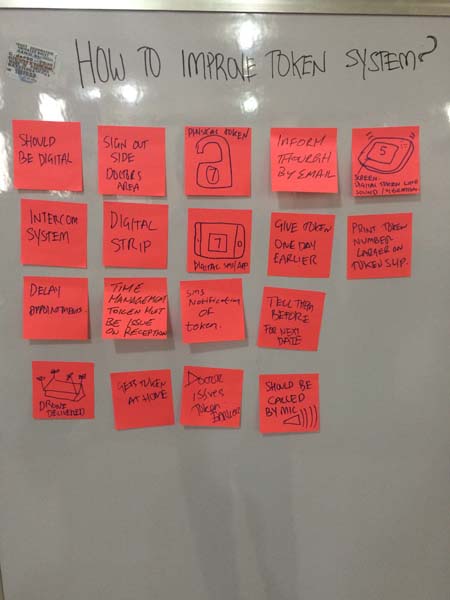 HOW TO IMPROVE TOKEN SYSTEM?
SHOULD
BE DIGITAL
SIGN OUT
SIDE
DOCTORS
AREA
PHYSICAL TOKEN
7
INFORM
THOUGH
BY EMAIL
5
SCREEN
DIGITAL TOKEN WITH
SOUND / VIBRATION
INTERCOM
SYSTEM
DIGITAL
STRIP
7
DIGITAL SMS/APP
GIVE TOKEN
ONE DAY
EARLIER
PRINT TOKEN
NUMBER
LARGER ON
TOKEN SLIP.
DELAY
APPOINTMENTS.
TIME
MANAGEMENT
TOKEN MUST
BE ISSUE
ON RECEPTION
SMS
Notification
OF
token.
TELL THEM
BEFORE
FOR NEXT
DATE
DRONE
DELIVERED
GETS TOKEN
AT HOME
DOCTOR
ISSUES
TOKEN
EARLIER
SHOULD BE
CALLED
BY MIC